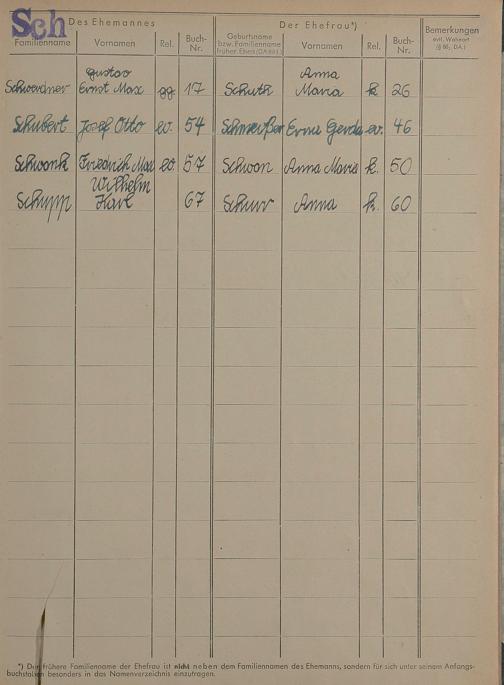 Sch
Des Ehemannes Der Ehefrau*)
Familienname Vornamen Rel. Buch-Nr. Geburtsname bzw. Familienname früher. Ehen (DA § 93) Vornamen Rel. Buch-Nr. Bemerkungen evtl. Wohnort (§ 86, DA.)
Gustav Anna
Schwerdner Ernst Max gg 17 Schuth Maria k 26
Schubert Josef Otto ev. 54 Erna Gerda ev. 46
Schwank Friedrich Max ev. 57 Schwan Anna Maria k. 50
Wilhelm
Schupp Karl 67 Schurr Anna k. 60
*) Der frühere Familienname der Ehefrau ist nicht neben dem Familiennamen des Ehemanns, sondern für sich unter seinem Anfangs-
buchstaben besonders in das Namenverzeichnis einzutragen.